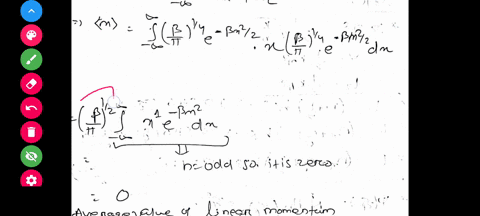 => ⟨x⟩ = ∫_{-∞}^{∞} (β/π)^{1/4} e^{-βx²/2} . x (β/π)^{1/4} e^{-βx²/2} dx
= (β/π)^{1/2} ∫_{-∞}^{∞} x^1 e^{-βx²} dx
n=odd so it is zero.
= 0
Average value of linear momentum